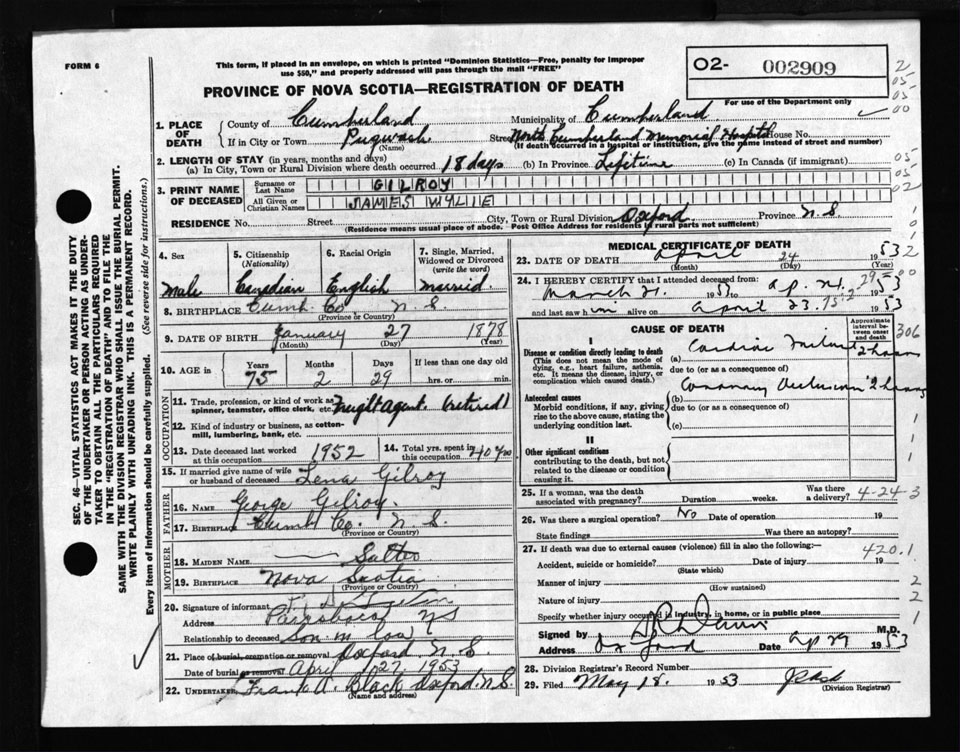 FORM 6
This form, if placed in an envelope, on which is printed "Dominion Statistics—Free, penalty for improper
use $50," and properly addressed will pass through the mail "FREE"
PROVINCE OF NOVA SCOTIA—REGISTRATION OF DEATH
O2- 002909
For use of the Department only
1. PLACE OF DEATH
County of Cumberland Municipality of Cumberland
If in City or Town Pugwash Street North Cumberland Memorial Hospital House No.
(Name) (If death occurred in a hospital or institution, give the name instead of street and number)
2. LENGTH OF STAY (in years, months and days)
(a) In City, Town or Rural Division where death occurred 18 days (b) In Province Lifetime (c) In Canada (if immigrant)
3. PRINT NAME OF DECEASED
Surname or Last Name GILROY
All Given or Christian Names JAMES WYLIE
RESIDENCE No. Street City, Town or Rural Division Oxford Province N.S
(Residence means usual place of abode. Post Office Address for residents of rural parts not sufficient)
4. Sex Male
5. Citizenship (Nationality) Canadian
6. Racial Origin English
7. Single, Married, Widowed or Divorced (write the word) Married.
8. BIRTHPLACE Cumb Co N.S.
(Province or Country)
9. DATE OF BIRTH January 27 1878
(Month) (Day) (Year)
10. AGE in Years 75 Months 2 Days 29 If less than one day old hrs. or min.
OCCUPATION
11. Trade, profession, or kind of work as spinner, teamster, office clerk, etc. Freight agent. (retired)
12. Kind of industry or business, as cotton-mill, lumbering, bank, etc.
13. Date deceased last worked at this occupation 1952
14. Total yrs. spent in this occupation 40 yrs
15. If married give name of wife or husband of deceased Lena Gilroy
FATHER
16. NAME George Gilroy
17. BIRTHPLACE Cumb Co. N.S.
(Province or Country)
MOTHER
18. MAIDEN NAME
19. BIRTHPLACE Nova Scotia
(Province or Country)
20. Signature of informant
Address Parrsboro NS
Relationship to deceased Son in law
21. Place of burial, cremation or removal Oxford N.S.
Date of burial or removal April 27 1953
22. UNDERTAKER Frank A. Black Oxford N.S
(Name and address)
MEDICAL CERTIFICATE OF DEATH
23. DATE OF DEATH April 24 1953
(Month) (Day) (Year)
24. I HEREBY CERTIFY that I attended deceased from:
March 21. 1953 to ap. 24. 1953
and last saw him alive on april 23. 1953
CAUSE OF DEATH
Approximate interval between onset and death
I
Disease or condition directly leading to death
(This does not mean the mode of dying, e.g., heart failure, asthenia, etc. It means the disease, injury, or complication which caused death.)
(a) Cardiac Failure 2 hours
due to (or as a consequence)
Antecedent causes
Morbid conditions, if any, giving rise to the above cause, stating the underlying condition last.
(b) Coronary Occlusion 2 hours
due to (or as a consequence)
(c)
II
Other significant conditions
contributing to the death, but not related to the disease or condition causing it.
25. If a woman, was the death associated with pregnancy? Duration weeks. Was there a delivery? 4-24-3
26. Was there a surgical operation? No Date of operation 19
State findings Was there an autopsy?
27. If death was due to external causes (violence) fill in also the following: 420.1
Accident, suicide or homicide? Date of injury 19
(State which)
Manner of injury
(How sustained)
Nature of injury
Specify whether injury occurred in industry, in home, or in public place
Signed by M.D.
Address Oxford Date ap 29 1953
28. Division Registrar's Record Number
29. Filed May 18. 1953
(Division Registrar)
SEC. 46—VITAL STATISTICS ACT MAKES IT THE DUTY
OF THE UNDERTAKER OR PERSON ACTING AS UNDER-
TAKER TO OBTAIN ALL THE PARTICULARS REQUIRED
IN THE "REGISTRATION OF DEATH" AND TO FILE THE
SAME WITH THE DIVISION REGISTRAR WHO SHALL ISSUE THE BURIAL PERMIT.
WRITE PLAINLY WITH UNFADING INK. THIS IS A PERMANENT RECORD.
Every item of information should be carefully supplied. (See reverse side for instructions.)
2
05
05
00
05
05
02
1
0
1
2
00
306
1
1
2
2
1